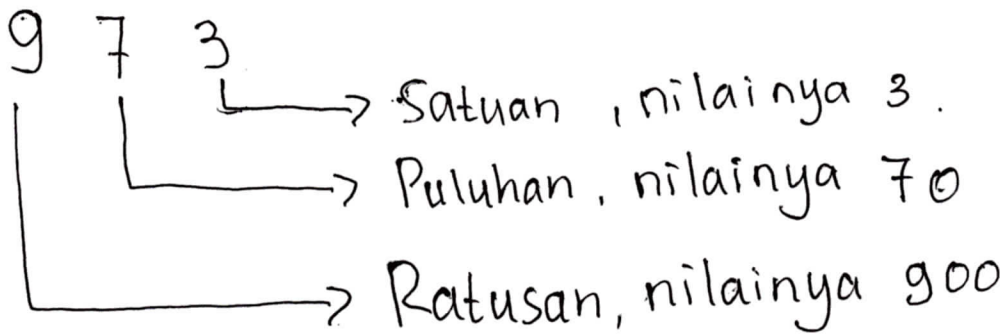 9 7 3
Satuan, nilainya 3.
Puluhan, nilainya 70
Ratusan, nilainya 900